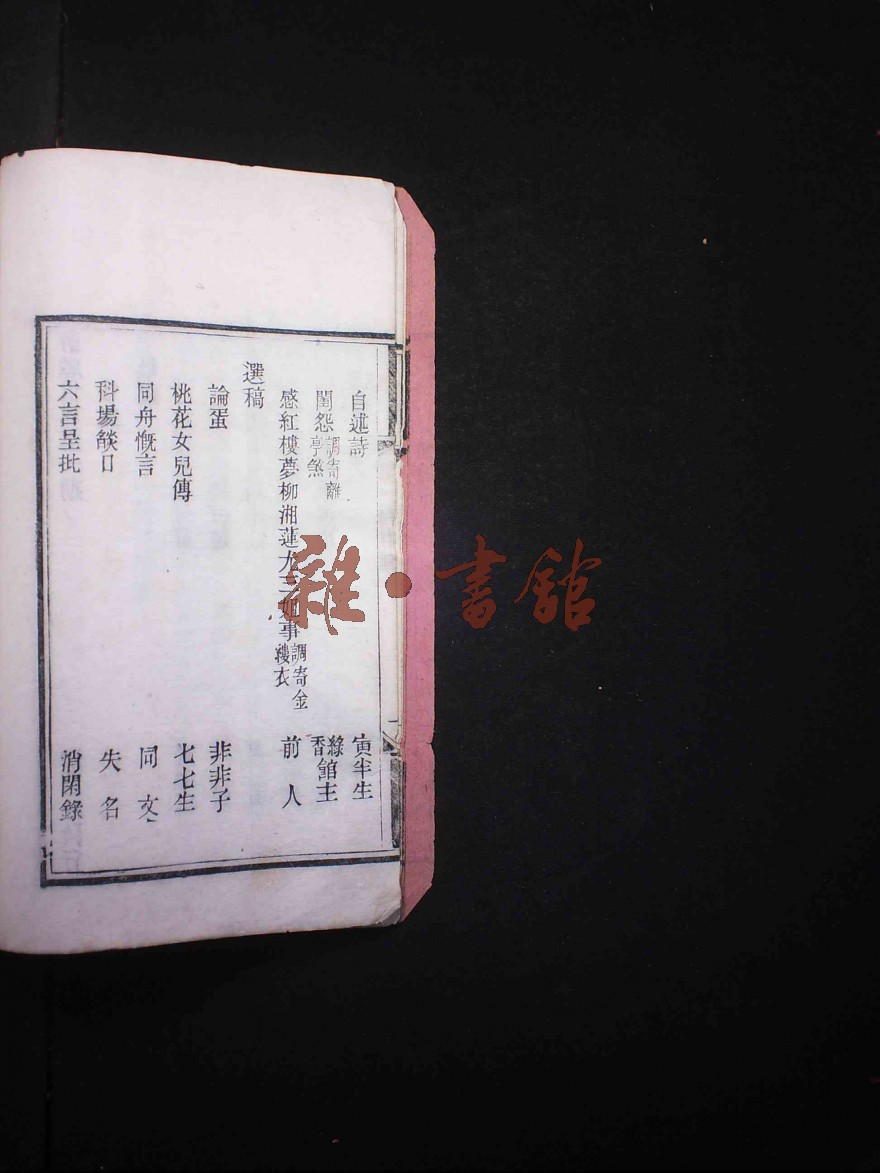 自述詩 寅半生
閨怨調寄離亭煞 綠香館主
感紅樓夢柳湘蓮尤三姐事調寄金縷衣 前人
選稿
論蛋 非非子
桃花女兒傳 七七生
同舟慨言 同文
科場燄口 失名
六言呈批 消閑錄
雜·書館